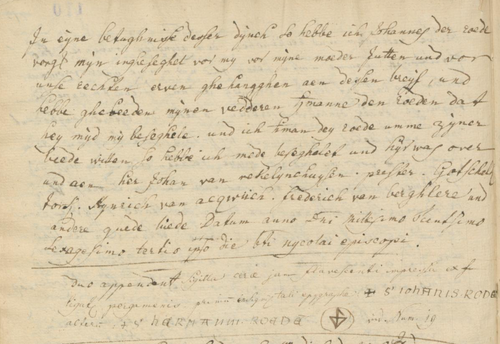 In eyne betughnisse desser dyner so hebbe ich Johannes der roede
vorgt myn ingheseghel vor my vor myne moeder Jutten und vor
unse rechten erven ghehangghen aen dessen breyf, und
hebbe ghebeeden mynen vedderen hermanne den roeden dat
hey myd my beseghele. und ich herman dey roede umme zyner
beede willen, so hebbe ich mede beseghelt und hyr was over
und aen her Johan van prester. Gotschalc
Hynrich van frederich van berghlere und
andere guede luede Datum anno Dni millesimo tricentesimo
sexagesimo tertio ipso die bti nycolai episcopi.
Duo appendent sigilla cerie
pergameno ✠ S IOHANIS RODE
altero ✠ S HERMANNI RODE